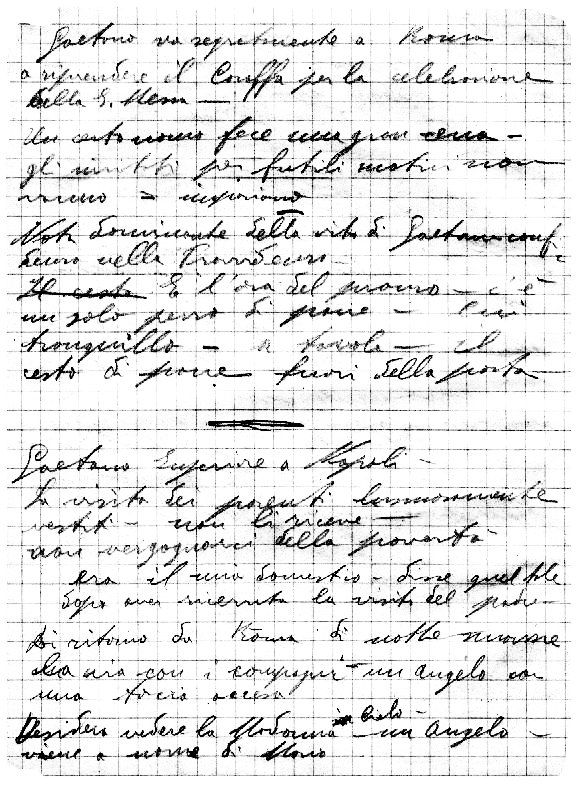 Gaetano va segretamente a Roma
a riprendere il Conffa per la celebrazione
della S. Messa —
Un certo uomo fece una gran cena —
gli invitati per futili motivi non
vanno =
Nota dominante della vita di Gaetano conf-
denza nella Provvidenza —
Il cesto E l'ora del pranzo — c'è
un solo pezzo di pane — Lui
tranquillo — a tavola — il
cesto di pane fuori della porta
Gaetano Superiore a Napoli —
La visita dei parenti lussuosamente
vestiti — non li riceve —
non vergognarsi della povertà
era il mio domestico — disse quel tale
dopo aver ricevuta la visita del padre —
Di ritorno da Roma di notte smarrisce
la via con i compagni — un angelo con
una torcia accesa
Desidera vedere la Madonna in Cielo — un Angelo —
viene a nome di Maria